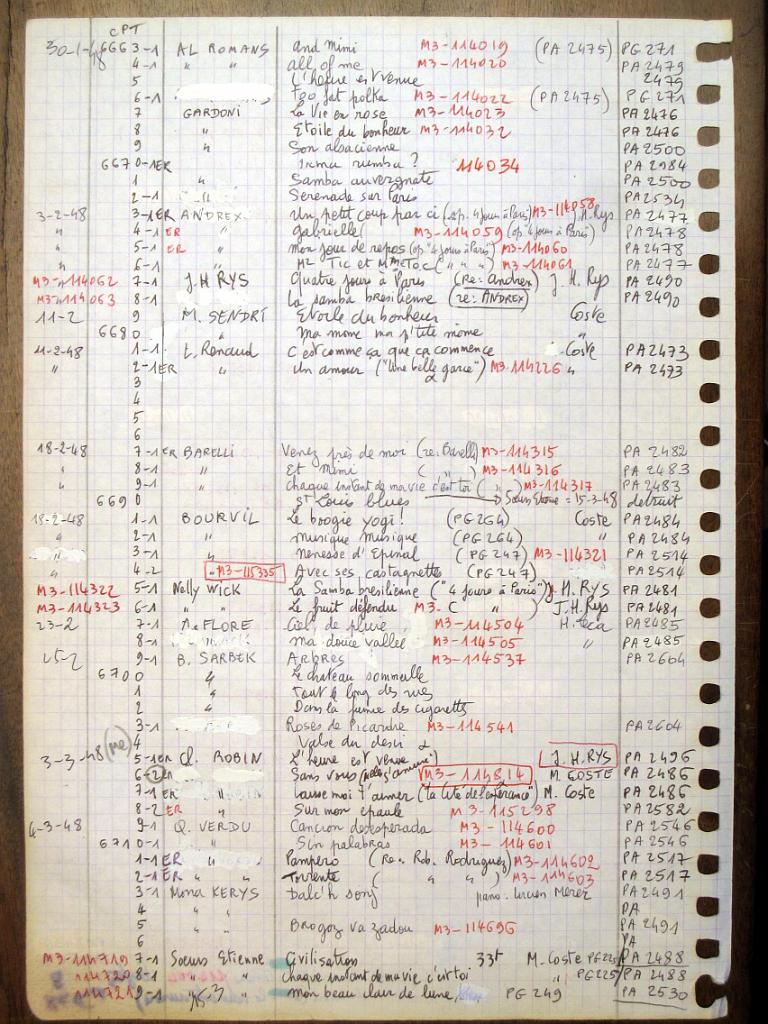 CPT
30-1-48 666 3-1 AL ROMANS and mimi M3-114019 (PA 2475) PG 271
4-1 " " all of me M3-114020 PA 2479
5 L'heure est venue 2479
6-1 Too fat polka M3-114022 (PA 2475) PG 271
7 GARDONI La Vie en rose M3-114023 PA 2476
8 " Etoile du bonheur M3-114032 PA 2476
9 " Son alsacienne PA 2500
667 0-1ER Irma rumba ? 114034 PA 2984
1 " Samba auvergnate PA 2500
2-1 Serenade sur Paris PA 2534
3-2-48 3-1ER ANDREX Un petit coup par ci (op. 4 jours à Paris) M3-114058 H. Rys PA 2477
" 4-1 ER " Gabrielle M3-114059 (op "4 jours à Paris) PA 2478
" 5-1 ER " mon jour de repos (op "4 jours à Paris) M3-114060 PA 2478
" 6-1 " Mr TIC et MmeTOC ( " " " ) M3-114061 PA 2477
M3-114062 7-1 J.H RYS Quatre jours à Paris (Re: Andrex) J. H. Rys PA 2490
M3-114063 8-1 La samba bresilienne (re: ANDREX) PA 2490
11-2 9 M. SENDRI Etoile du bonheur Coste
668 0 " Ma mome ma p'tite mome "
11-2-48 1-1 L. Renaud C'est comme ça que ça commence Coste PA 2473
" 2-1ER " Un amour ("Une belle garce") M3-114226 " PA 2473
3
4
5
6
18-2-48 7-1 ER BARELLI Venez près de moi (re: Barelli) M3-114315 PA 2482
" 8-1 " Et mimi ( " ) M3-114316 PA 2483
" 9-1 " chaque instant de ma vie c'est toi ( " ) M3-114317 PA 2483
669 0 St Louis blues = 15-3-48 detruit
18-2-48 1-1 BOURVIL Le boogie yogi! (PG 264) Coste PA 2484
" 2-1 " musique musique (PG 264) " PA 2484
3-1 " nenesse d'Epinal (PG 247) M3-114321 PA 2514
" 4-2 " M3-115335 Avec ses castagnettes (PG 247) PA 2514
M3-114322 5-1 Nelly WICK La Samba bresilienne ("4 jours à Paris") J. H. RYS PA 2481
M3-114323 6-1 " " Le fruit défendu M3. ( " ) J. H. Rys PA 2481
23-2 7-1 FLORE Ciel de pluie M3-114504 PA 2485
8-1 ma douce vallee M3-114505 " PA 2485
25-2 9-1 B. SARBEK ARBRES M3-114537 PA 2604
670 0 " Le chateau sommeille
1 " Tout le long des rues
2 " Dans la fumée des cigarettes
3-1 Roses de Picardie M3-114541 PA 2604
4 Valse du desir
3-3-48 (me) 5-1ER ROBIN L'heure est venue J. H. RYS PA 2496
6-2ER Sans vous M3-114814 M. COSTE PA 2486
7-1 ER " Laisse moi t'aimer ("la cité de l'esperance") M. Coste PA 2486
8-2 ER " Sur mon epaule M3-115298 PA 2582
4-3-48 9-1 Q. VERDU Cancion desesperada M3-114600 PA 2546
671 0-1 " Sin palabras M3-114601 PA 2546
1-1 ER " Pampero (Re: Rob. Rodriguez) M3-114602 PA 2517
2-1 ER " Torrente ( " " ) M3-114603 PA 2517
3-1 Mona KERYS Dalc'h sonj piano: Lucien Merer PA 2491
4 " " PA
5 " " Brogoz va zadou M3-114696 PA 2491
6 PA
M3-114719 7-1 Soeurs Etienne Civilisation 33t M. Coste PG 225 PA 2488
114720 8-1 " " chaque instant de ma vie c'est toi " PG 225 PA 2488
114721 9-1 15-3 " mon beau clair de lune PG 249 PA 2530